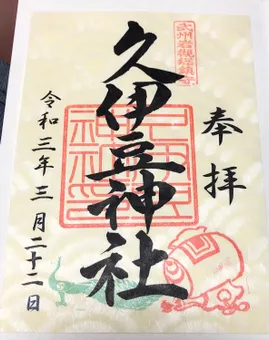 奉拝
武州岩槻總鎮守
久伊豆神社
令和三年三月二十二日